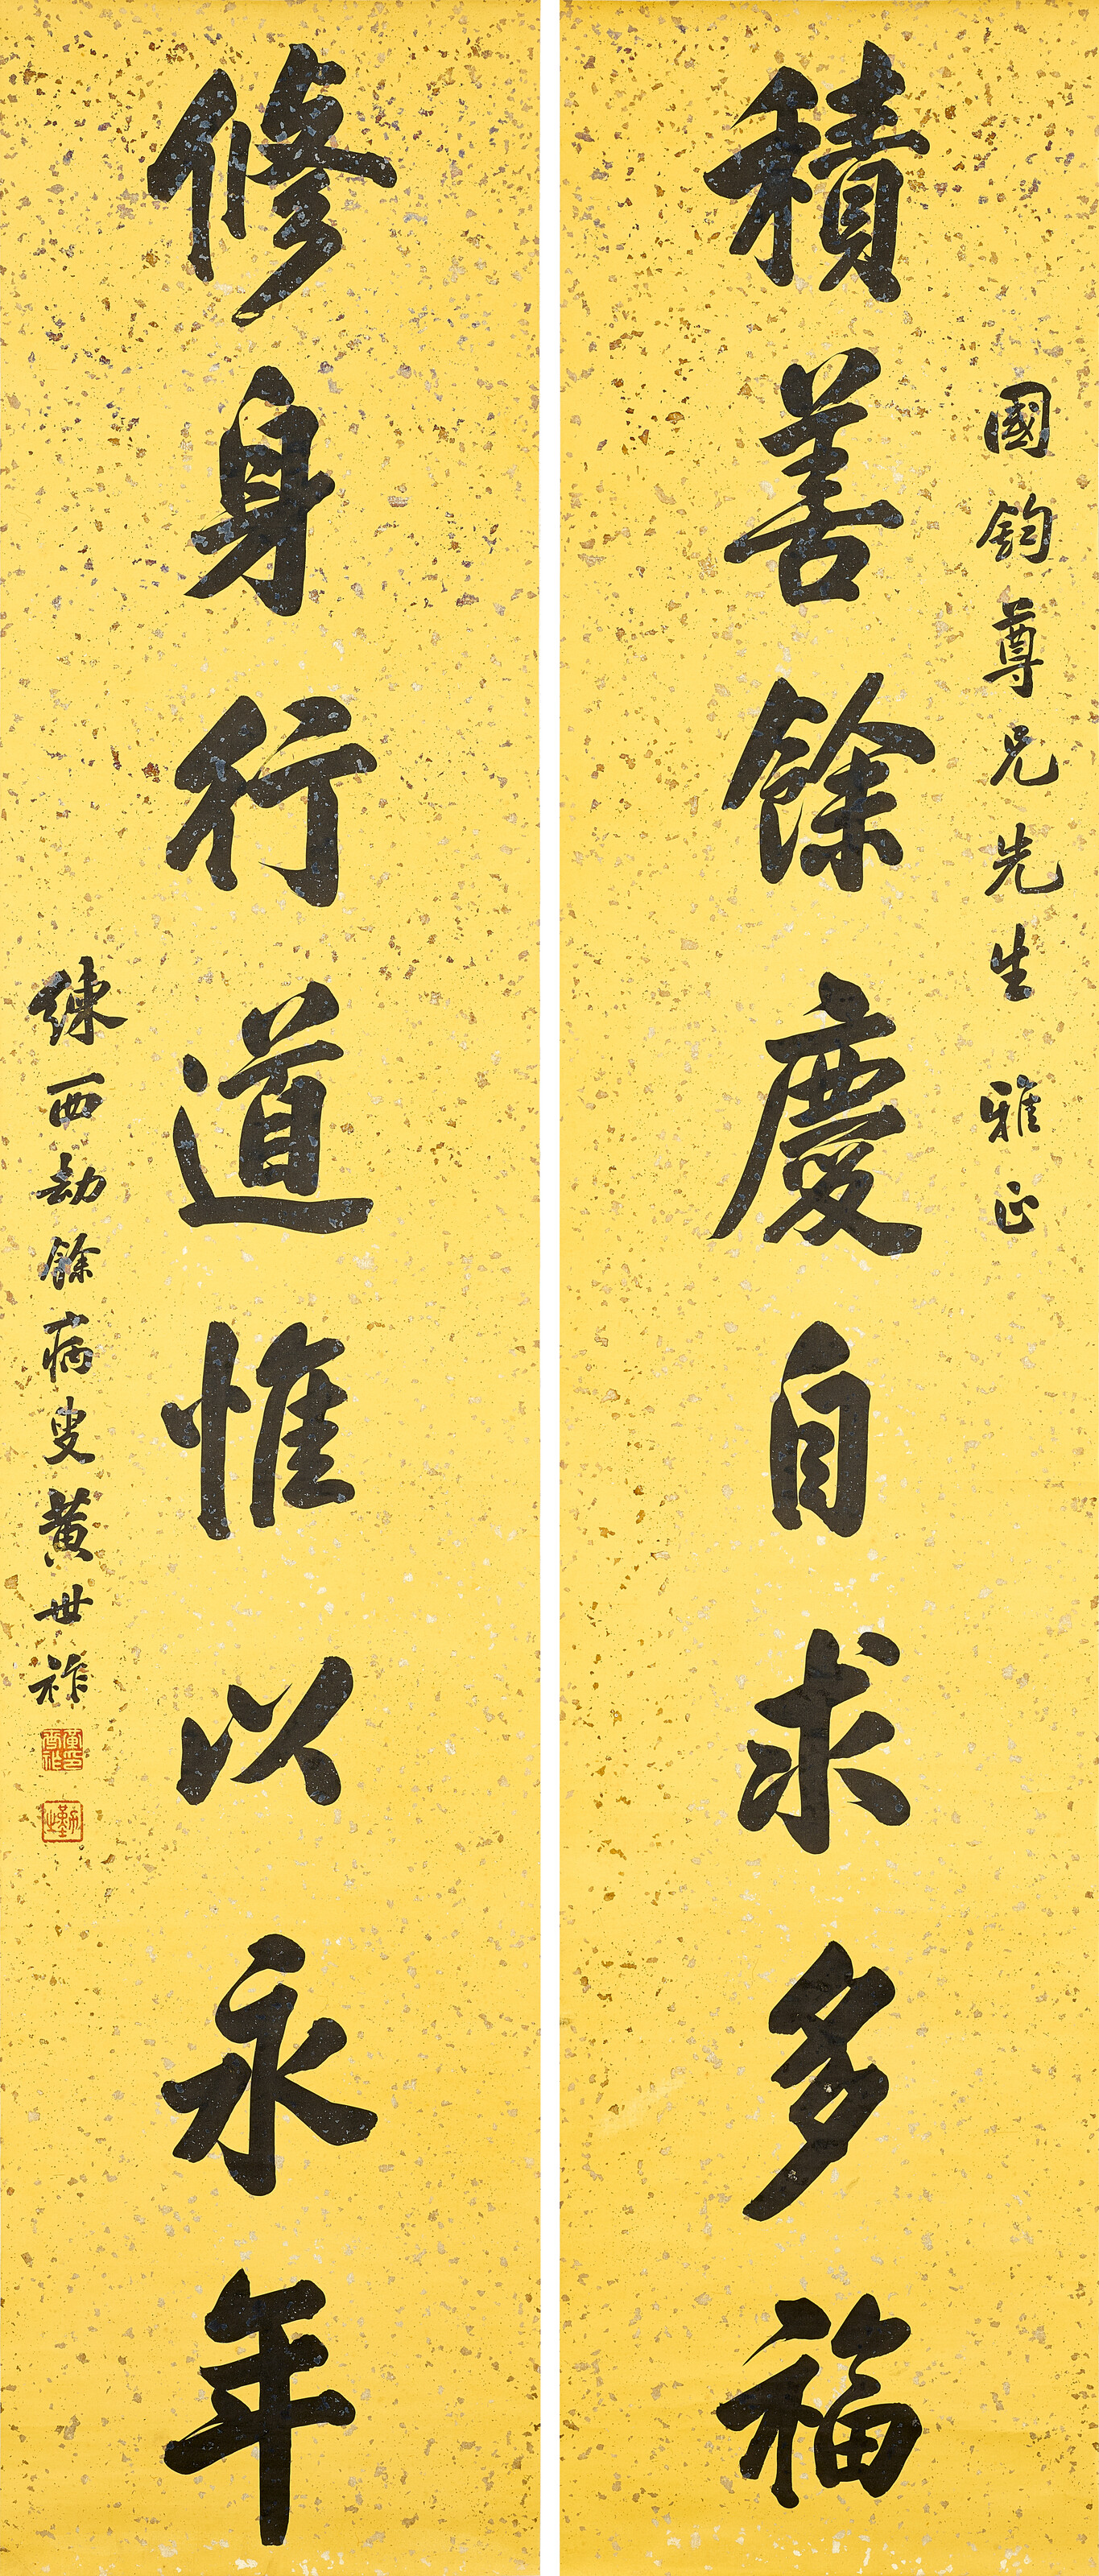 國鈞尊兄先生 雅正
積善餘慶自求多福
修身行道惟以永年
練西劫餘病叟黃世祚